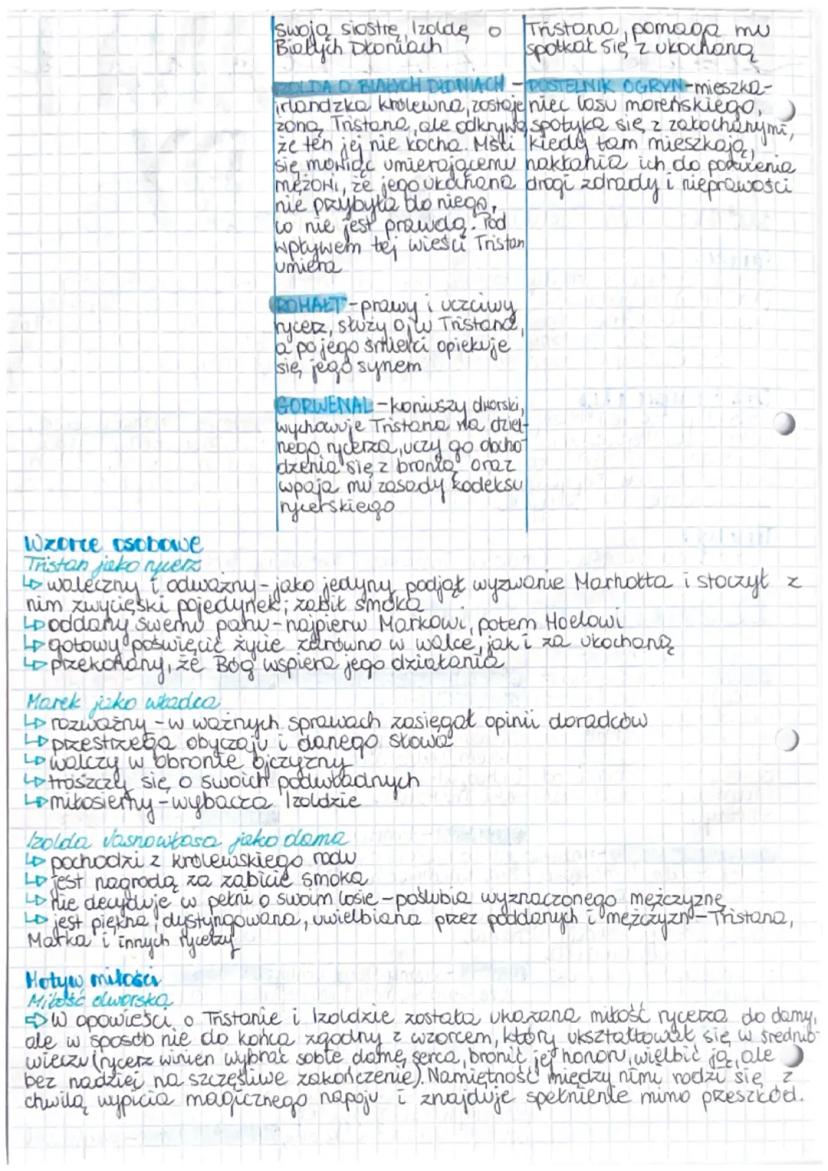 swoją siostrę, Izoldę o
Białych Dłoniach
IZOLDA O BIAŁYCH DŁONIACH -
irlandzka królewna, zostaje
żoną Tristana, ale odkrywa
że ten jej nie kocha. Mści
się mówiąc umierającemu
mężowi, że jego ukochana
nie przybyła do niego,
co nie jest prawdą. Pod
wpływem tej wieści Tristan
umiera
ROHAŁT - prawy i uczciwy
rycerz, służy ojcu Tristana,
a po jego śmierci opiekuje
się jego synem
GORWENAL - koniuszy dworski,
wychowuje Tristana na dziel-
nego rycerza, uczy go obcho-
dzenia się z bronią oraz
wpaja mu zasady kodeksu
rycerskiego
Tristana, pomaga mu
spotkać się z ukochaną
PUSTELNIK OGRYN - mieszka-
niec lasu moreńskiego,
spotyka się z zakochanymi,
kiedy tam mieszkają,
nakłania ich do porzucenia
drogi zdrady i nieprawości
Wzorce osobowe
Tristan jako rycerz
↳ waleczny i odważny - jako jedyny podjął wyzwanie Marhołta i stoczył z
nim zwycięski pojedynek; zabił smoka
↳ oddany swemu panu - najpierw Markowi, potem Hoelowi
↳ gotowy poświęcić życie zarówno w walce, jak i za ukochaną
↳ przekonany, że Bóg wspiera jego działania
Marek jako władca
↳ rozważny - w ważnych sprawach zasięgał opinii doradców
↳ przestrzega obyczaju i danego słowa
↳ walczy w obronie ojczyzny
↳ troszczy się o swoich podwładnych
↳ miłosierny - wybacza Izoldzie
Izolda Jasnowłosa jako dama
↳ pochodzi z królewskiego rodu
↳ jest nagrodą za zabicie smoka
↳ nie decyduje w pełni o swoim losie - poślubia wyznaczonego mężczyznę
↳ jest piękna, dystyngowana, uwielbiana przez poddanych i mężczyzn - Tristana,
Marka i innych rycerzy
Motyw miłości
Miłość dworska
⇨ W opowieści o Tristanie i Izoldzie została ukazana miłość rycerza do damy,
ale w sposób nie do końca zgodny z wzorcem, który ukształtował się w średnio-
wieczu (rycerz winien wybrać sobie damę serca, bronić jej honoru, wielbić ją, ale
bez nadziei na szczęśliwe zakończenie). Namiętność między nimi rodzi się z
chwilą wypicia magicznego napoju i znajduje spełnienie mimo przeszkód.